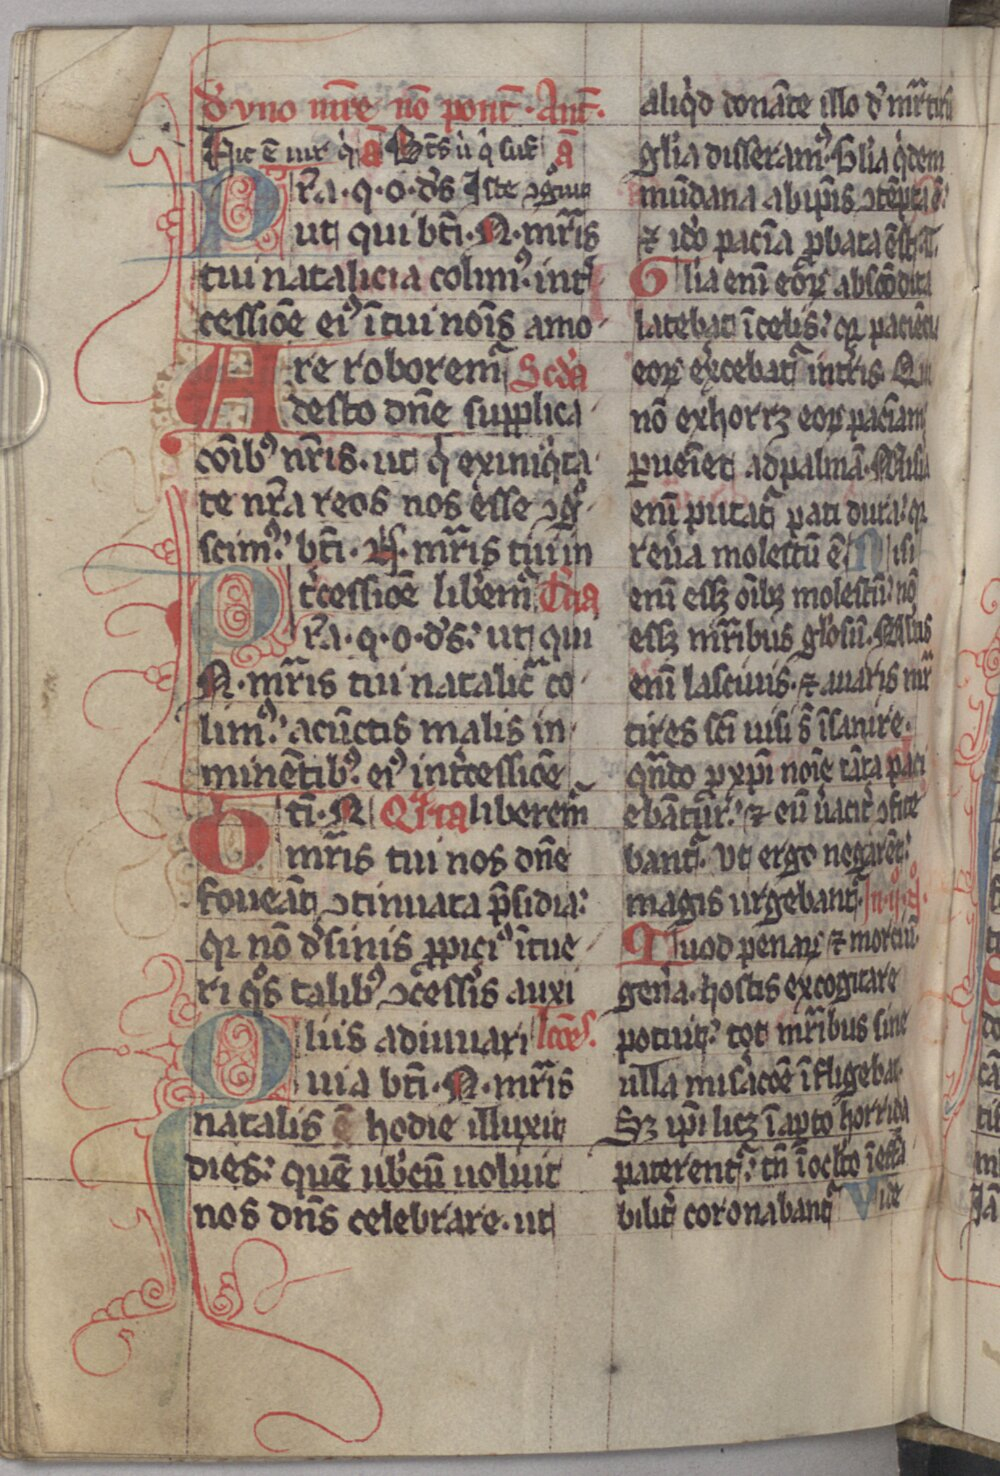 d' vno mr̄e nō pont̄. Ant̄.
Hic ē uir q̇ a Bt̄s ù q̇ suf̄ a
Pr̄a. q. o. d's Iste ɔgͥnuit
ut qui bt̄i. N. mr̄is
tui natalicia colimꝰ. int̾
cessiōe eiꝰ ī tui noīs amo
re roboremᷣ Sc̄da
Adesto dn̄e supplica
cōibꝰ nr̄is. ut qͥ ex iniqͥta
te nr̄a reos nos esse ɔgͦ
scimꝰ: bt̄i. N. mr̄is tui in
t̾cessiōe liberemᷣ T̄cia
Pr̄a. q. o. d's. ut qui
N. mr̄is tui natalic̄ co
limꝰ: a cūctis malis in
minētibꝰ. eiꝰ int̾cessiōe
liberemᷣ Qͬta
Bt̄i. N
mr̄is tui nos dn̄e
foueāt ɔtinuata p̄sidia:
qꝛ nō d'sinis ꝓpiciꝰ ītue
ri qͦs talibꝰ ɔcesseͥs auxi
liis adiuuari lcc̄e.
Quia bt̄i. N. mr̄is
natalis ē hodie illuxit
dies: quē ubͥcū uoluit
nos dn̄s celebrare. ut
aliqͥd donāte illo d' mr̄tiris
gl̄ia disseramꝰ. Gl̄ia qͥdem
mūdana ab ip̄is ɔtēpta ē:
⁊ ido pacīa ꝓbata ē
Gl̄ia enī eoꝝ abscōdita
latebat ī celis: qꝛ paciēcia
eoꝝ ex̾cebatᷣ in t̾ris Qui
nō exhorrꝫ eoꝝ paciam
ꝑueiet ad palmā. Misi
enī putatᷣ pati dura: qꝛ
reu̾a molestū ē Nisi
enī eēꝫ oībꝫ molestū: nō
eēꝫ mr̄ibus gl̄osū. Multis
enī lasciuis. ⁊ auaris mr̄
tires sc̄i uisi s̄ īsanire.
qn̄do ꝓ xp̄i noīe tāta paci
ebātur: ⁊ eū u̾acit̾ ɔfite
bantᷣ. Vt ergo negarēt:
magis urgebantᷣ. In. ij. n̊.
Quod penaꝝ ⁊ morciū
gen̾a. hostis excogitare
potuit: tot mr̄ibus sine
ulla mis̾acōe īfligebat.
Sꝫ ip̄i licꝫ ī aꝑto horrida
paterentᷣ: tn̄ ī oc̄lto īeffa
bilit̾ coronabantᷣ Vide